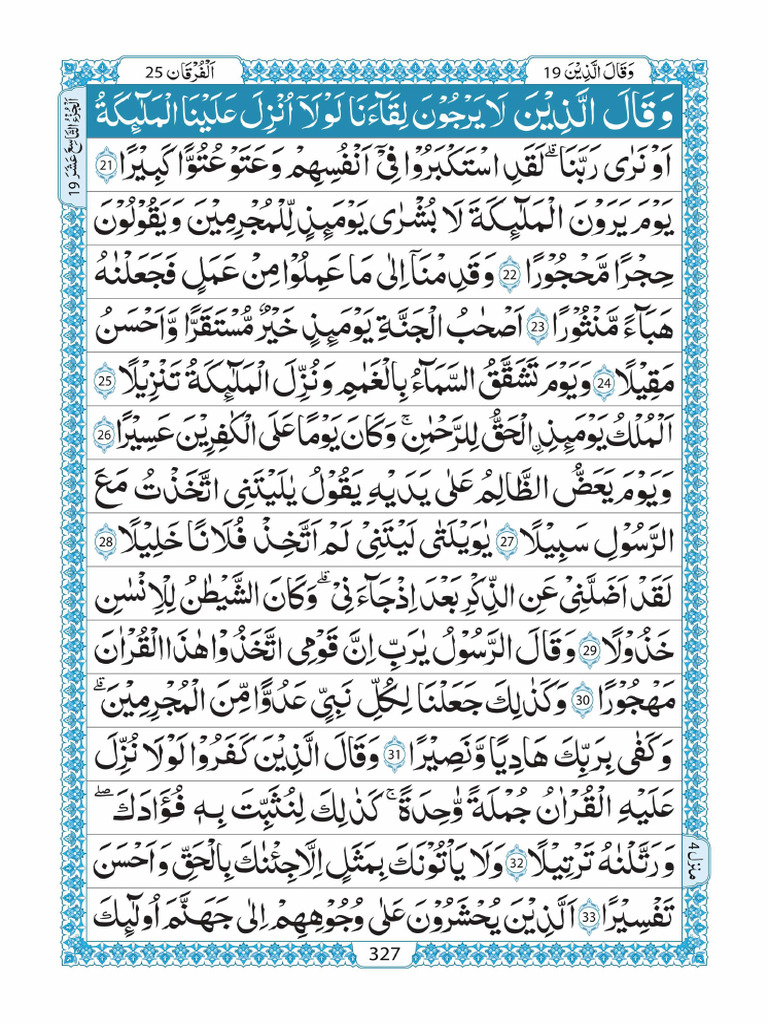 وَقَالَ الَّذِيْنَ 19
اَلْفُرْقَان 25
اَلْجُزْءُ التَّاسِعَ عَشَرَ 19
وَقَالَ الَّذِيْنَ لَا يَرْجُوْنَ لِقَآءَنَا لَوْلَآ اُنْزِلَ عَلَيْنَا الْمَلٰٓئِكَةُ
اَوْ نَرٰى رَبَّنَا ؕ لَقَدِ اسْتَكْبَرُوْا فِيْٓ اَنْفُسِهِمْ وَعَتَوْ عُتُوًّا كَبِيْرًا 21
يَوْمَ يَرَوْنَ الْمَلٰٓئِكَةَ لَا بُشْرٰى يَوْمَئِذٍ لِّلْمُجْرِمِيْنَ وَيَقُوْلُوْنَ
حِجْرًا مَّحْجُوْرًا 22 وَقَدِمْنَآ اِلٰى مَا عَمِلُوْا مِنْ عَمَلٍ فَجَعَلْنٰهُ
هَبَآءً مَّنْثُوْرًا 23 اَصْحٰبُ الْجَنَّةِ يَوْمَئِذٍ خَيْرٌ مُّسْتَقَرًّا وَّاَحْسَنُ
مَقِيْلًا 24 وَيَوْمَ تَشَقَّقُ السَّمَآءُ بِالْغَمَامِ وَنُزِّلَ الْمَلٰٓئِكَةُ تَنْزِيْلًا 25
اَلْمُلْكُ يَوْمَئِذِ ۨالْحَقُّ لِلرَّحْمٰنِ ۚ وَكَانَ يَوْمًا عَلَى الْكٰفِرِيْنَ عَسِيْرًا 26
وَيَوْمَ يَعَضُّ الظَّالِمُ عَلٰى يَدَيْهِ يَقُوْلُ يٰلَيْتَنِى اتَّخَذْتُ مَعَ
الرَّسُوْلِ سَبِيْلًا 27 يٰوَيْلَتٰى لَيْتَنِيْ لَمْ اَتَّخِذْ فُلَانًا خَلِيْلًا 28
لَقَدْ اَضَلَّنِيْ عَنِ الذِّكْرِ بَعْدَ اِذْ جَآءَنِيْ ؕ وَكَانَ الشَّيْطٰنُ لِلْاِنْسٰنِ
خَذُوْلًا 29 وَقَالَ الرَّسُوْلُ يٰرَبِّ اِنَّ قَوْمِى اتَّخَذُوْا هٰذَا الْقُرْاٰنَ
مَهْجُوْرًا 30 وَكَذٰلِكَ جَعَلْنَا لِكُلِّ نَبِيٍّ عَدُوًّا مِّنَ الْمُجْرِمِيْنَ ؕ
وَكَفٰى بِرَبِّكَ هَادِيًا وَّنَصِيْرًا 31 وَقَالَ الَّذِيْنَ كَفَرُوْا لَوْلَا نُزِّلَ
عَلَيْهِ الْقُرْاٰنُ جُمْلَةً وَّاحِدَةً ۚ كَذٰلِكَ لِنُثَبِّتَ بِهٖ فُؤَادَكَ ۖ
وَرَتَّلْنٰهُ تَرْتِيْلًا 32 وَلَا يَاْتُوْنَكَ بِمَثَلٍ اِلَّا جِئْنٰكَ بِالْحَقِّ وَاَحْسَنَ
تَفْسِيْرًا 33 اَلَّذِيْنَ يُحْشَرُوْنَ عَلٰى وُجُوْهِهِمْ اِلٰى جَهَنَّمَ اُولٰٓئِكَ
منزل 4
327